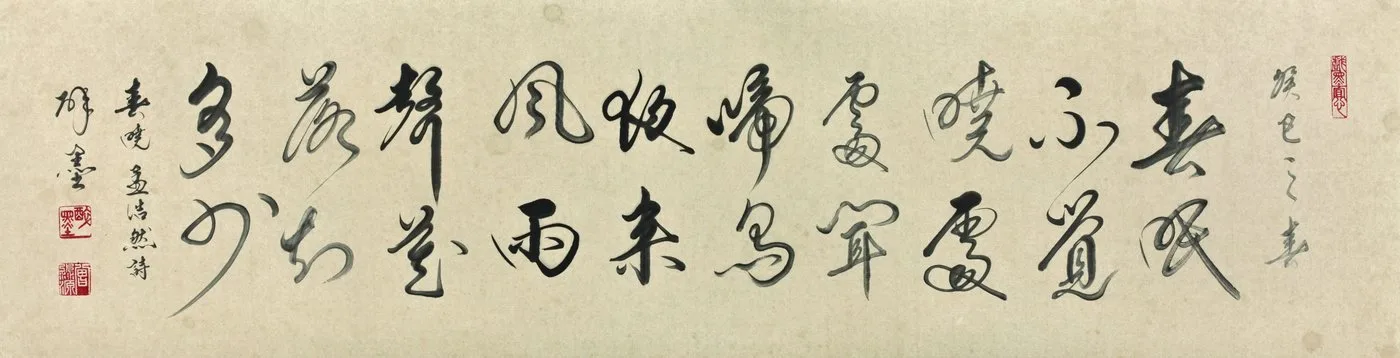 癸巳之春
春眠
不覺
曉處
處聞
啼鳥
夜来
風雨
聲花
落知
多少
春曉孟浩然詩
醉墨